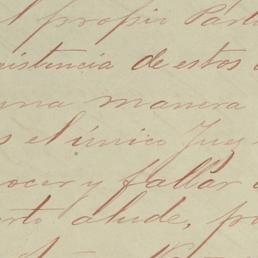 el propio Parti
xistencia de estos
una manera
s el único Juez
nocer y fallar
erto alude, pr